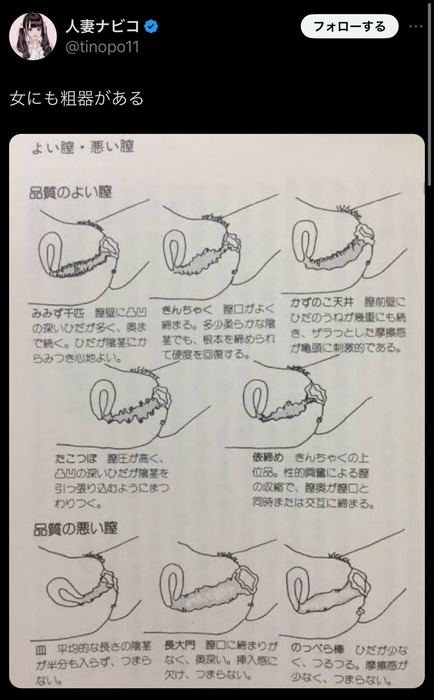 人妻ナビコ
フォローする
@tinopo11
女にも粗器がある
よい膣・悪い膣
品質のよい膣
みみず千匹 膣壁に凸凹
の深いひだが多く、奥ま
で続く。ひだが陰茎にか
らみつき心地よい。
きんちゃく 膣口がよく
締まる。多少柔らかな陰
茎でも、根本を締められ
て硬度を回復する。
かずのこ天井 膣前壁に
ひだのうねが幾重にも続
き、ザラっとした摩擦感
が亀頭に刺激的である。
たこつぼ 膣圧が高く、
凸凹の深いひだが陰茎を
引っ張り込むようにまつ
わりつく。
俵締め きんちゃくの上
位品。性的興奮による膣
の収縮で、膣奥が膣口と
同時または交互に締まる。
品質の悪い膣
皿 平均的な長さの陰茎
が半分も入らず、つまら
ない。
長大門 膣口に締まりが
なく、奥深い。挿入感に
欠け、つまらない。
のっぺら棒 ひだが少な
く、つるつる。摩擦感が
少なく、つまらない。